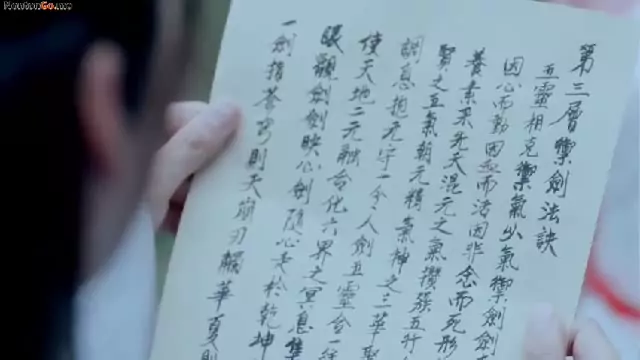 NewtonGo.me
第三層禦劍法訣
五靈相克禦氣以氣禦劍劍
因心而動因血而活因非念而死形
養素系先天混元之氣攢簇五行
賢之五氣朝元精氣神之三華聚
調息抱元守一令人劍五靈合一
使天地二元融合化六界之冥息集
眼觀劍劍映心劍隨心天於乾坤
一劍指蒼穹則天崩刃觸華夏則